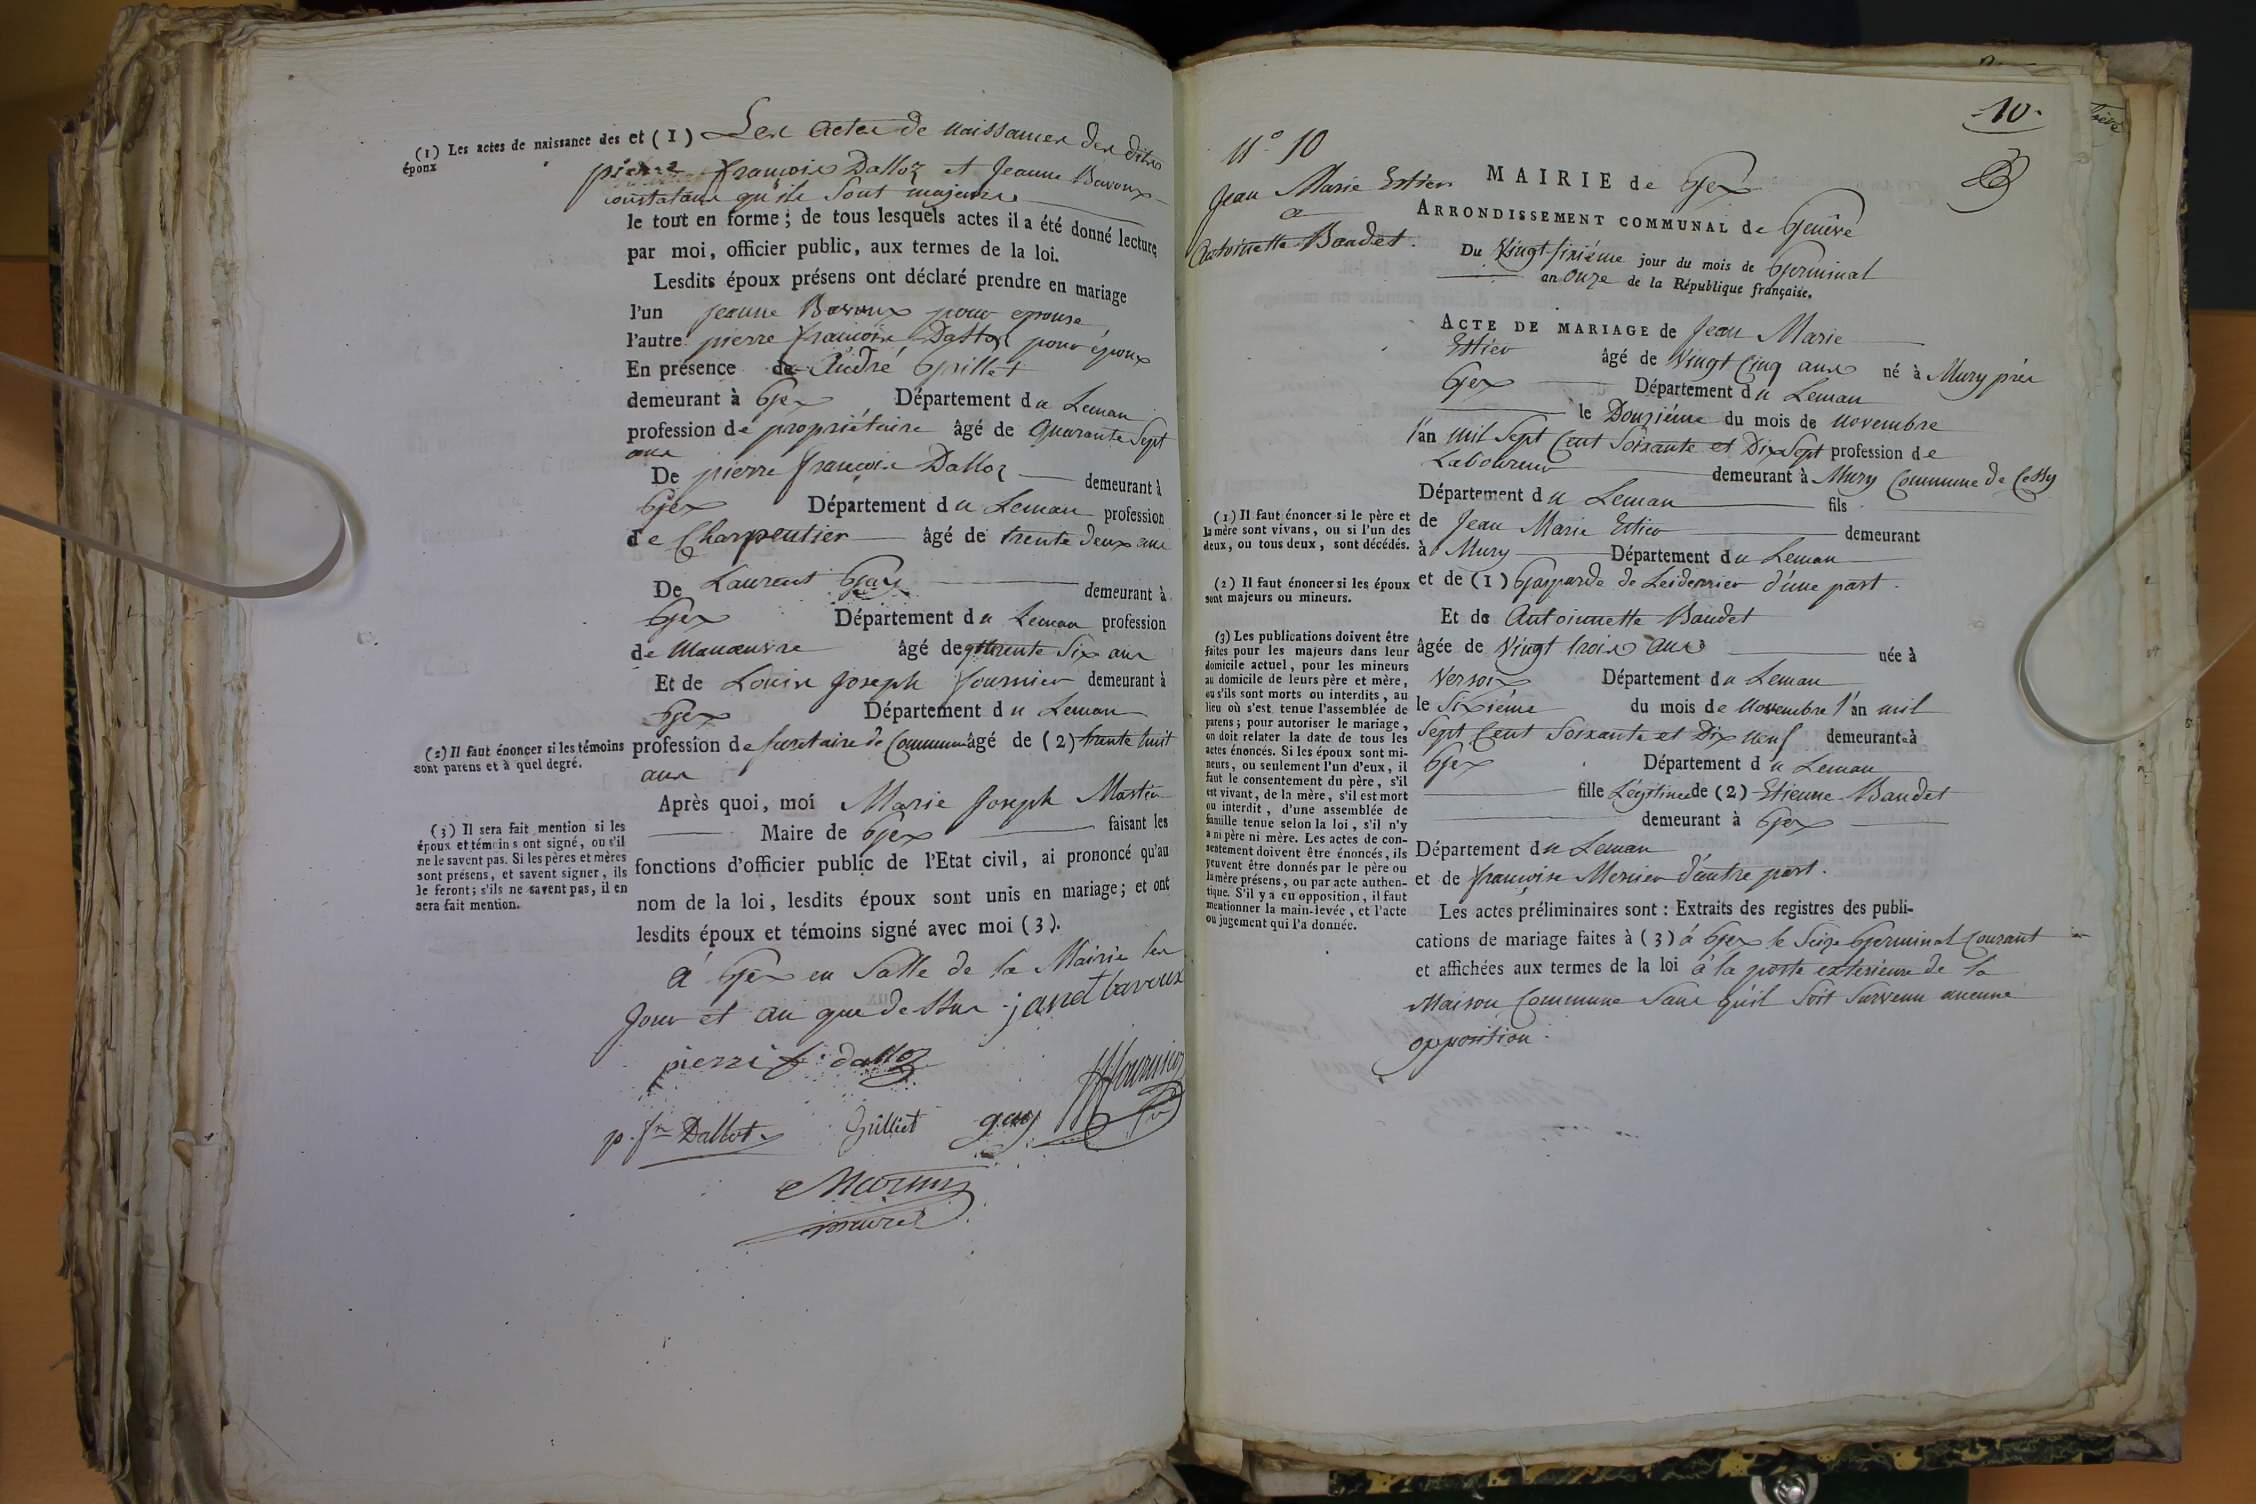 (1) Les actes de naissance des
époux
et (1) Les actes de naissances des dits
pierre françois Dalloz et Jeanne Bavoux
constatans qu'ils sont majeurs
le tout en forme ; de tous lesquels actes il a été donné lecture
par moi, officier public, aux termes de la loi.
Lesdits époux présens ont déclaré prendre en mariage
l'un jeanne Bavoux pour epouse
l'autre pierre françois Dalloz pour époux
En présence de André Grillet
demeurant à Gex Département du Leman
profession de propriétaire âgé de quarante sept
ans
De pierre françois Dalloz demeurant à
Gex Département du Leman profession
de Charpentier âgé de trente deux ans
De Laurent Gay demeurant à
Gex Département du Leman profession
de Manœuvre âgé de trente six ans
Et de Louis Joseph fournier demeurant à
Gex Département du Leman
(2) Il faut énoncer si les témoins
sont parens et à quel degré.
profession de secretaire de Commune âgé de (2) trente huit
ans
Après quoi, moi Marie Joseph Martin
Maire de Gex faisant les
(3) Il sera fait mention si les
époux et témoins ont signé, ou s'il
ne le savent pas. Si les pères et mères
sont présens, et savent signer, ils
le feront ; s'ils ne savent pas, il en
sera fait mention.
fonctions d'officier public de l'Etat civil, ai prononcé qu'au
nom de la loi, lesdits époux sont unis en mariage ; et ont
lesdits époux et témoins signé avec moi (3).
à Gex en Salle de la Mairie les
Jour et an que dessus janet bavoux
pierre f. dalloz
fournier
p. fs Dallot Grilliet gay
Martin
maire
10.
N.º 10
Jean Marie Estier
a
Antoinette Baudet.
MAIRIE de Gex
ARRONDISSEMENT COMMUNAL de Genève
Du Vingt sixiéme jour du mois de Germinal
an onze de la République française.
ACTE DE MARIAGE de Jean Marie
Estier âgé de Vingt Cinq ans né à Mury près
Gex Département du Leman
le Douziéme du mois de Novembre
l'an Mil Sept Cent Soixante et Dix Sept profession de
Laboureur demeurant à Mury Commune de Cessy
Département du Leman fils
(1) Il faut énoncer si le père et
la mère sont vivans, ou si l'un des
deux, ou tous deux, sont décédés.
de Jean Marie Estier demeurant
à Mury Département du Leman
(2) Il faut énoncer si les époux
sont majeurs ou mineurs.
et de (1) Gasparde de Leiderrier d'une part.
Et de Antoinette Baudet
(3) Les publications doivent être
faites pour les majeurs dans leur
domicile actuel, pour les mineurs
au domicile de leurs père et mère,
ou s'ils sont morts ou interdits, au
lieu où s'est tenue l'assemblée de
parens ; pour autoriser le mariage,
on doit relater la date de tous les
actes énoncés. Si les époux sont mi-
neurs, ou seulement l'un d'eux, il
faut le consentement du père, s'il
est vivant, de la mère, s'il est mort
ou interdit, d'une assemblée de
famille tenue selon la loi, s'il n'y
a ni père ni mère. Les actes de con-
sentement doivent être énoncés, ils
peuvent être donnés par le père ou
la mère présens, ou par acte authen-
tique. S'il y a eu opposition, il faut
mentionner la main-levée, et l'acte
ou jugement qui l'a donnée.
âgée de Vingt trois ans née à
Versoix Département du Leman
le Sixiéme du mois de Novembre l'an mil
Sept Cent Soixante et Dix neuf demeurant à
Gex Département du Leman
fille Légitime de (2) Etienne Baudet
demeurant à Gex
Département du Leman
et de françoise Mercier d'autre part.
Les actes préliminaires sont : Extraits des registres des publi-
cations de mariage faites à (3) à Gex le Seize Germinal Courant
et affichées aux termes de la loi à la porte exterieure de la
Maison Commune Sans qu'il Soit Survenu aucune
opposition.